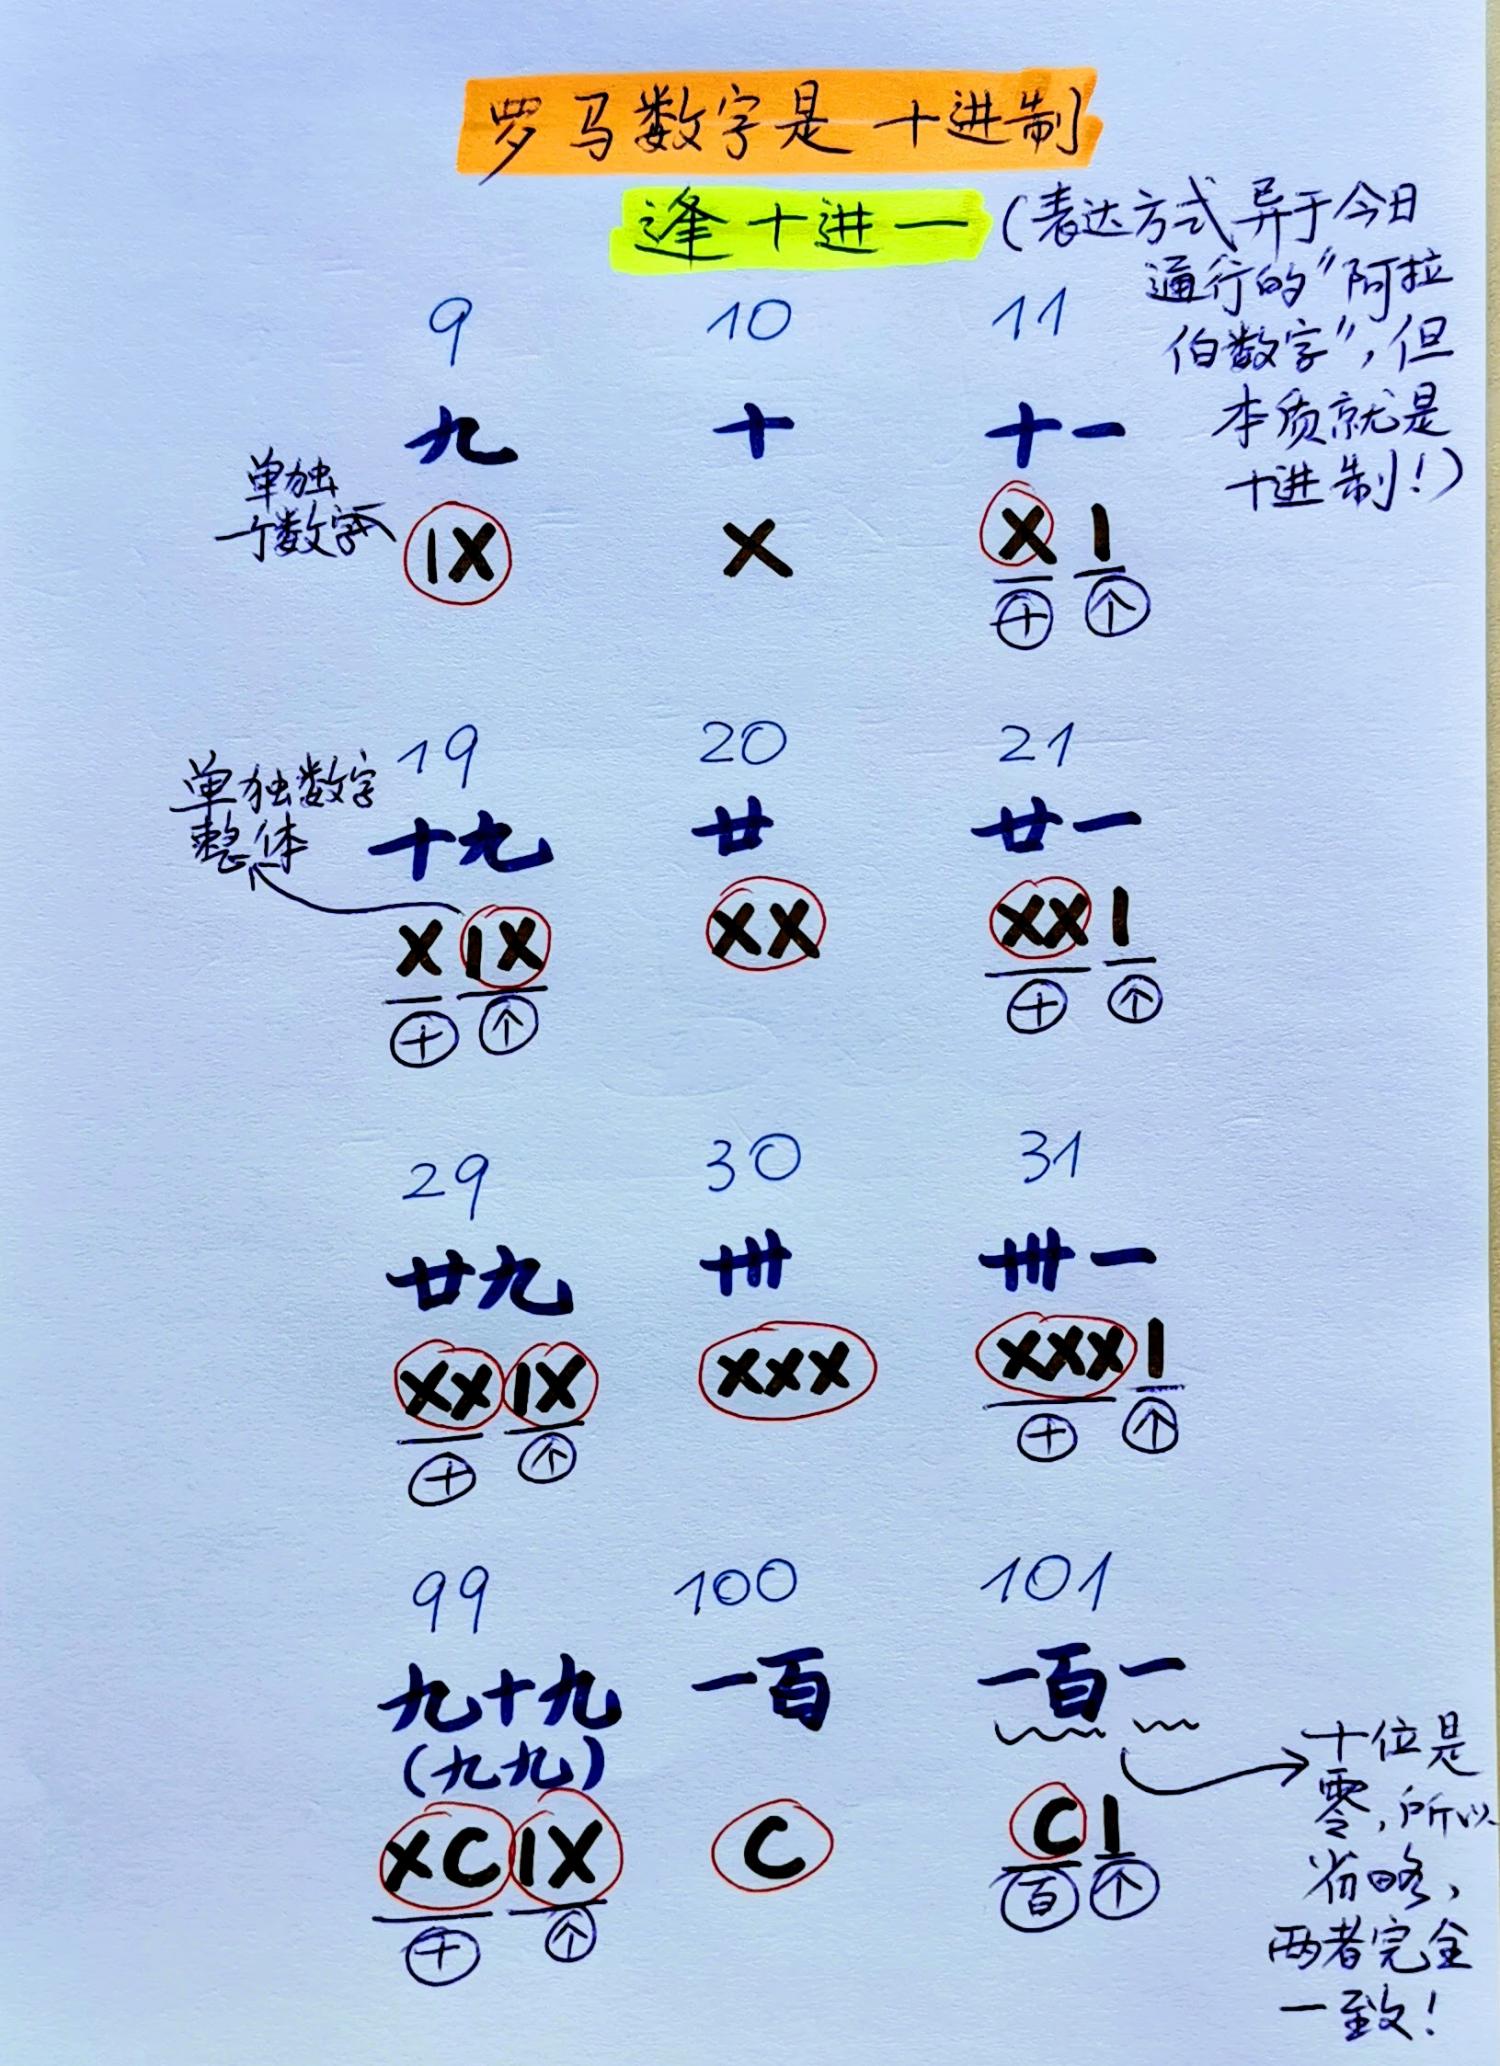 罗马数字是十进制
逢十进一(表达方式异于今日
通行的"阿拉
伯数字",但
本质就是
十进制!)
9 10 11
九 十 十一
单独
个数字
IX X X I
十 个
19 20 21
单独数字
整体
十九 廿 廿一
X IX XX XX I
十 个 十 个
29 30 31
廿九 卅 卅一
XX IX XXX XXX I
十 个 十 个
99 100 101
九十九 一百 一百一
(九九)
XC IX C C I
十 个 百 个
十位是
零,所以
省略,
两者完全
一致!